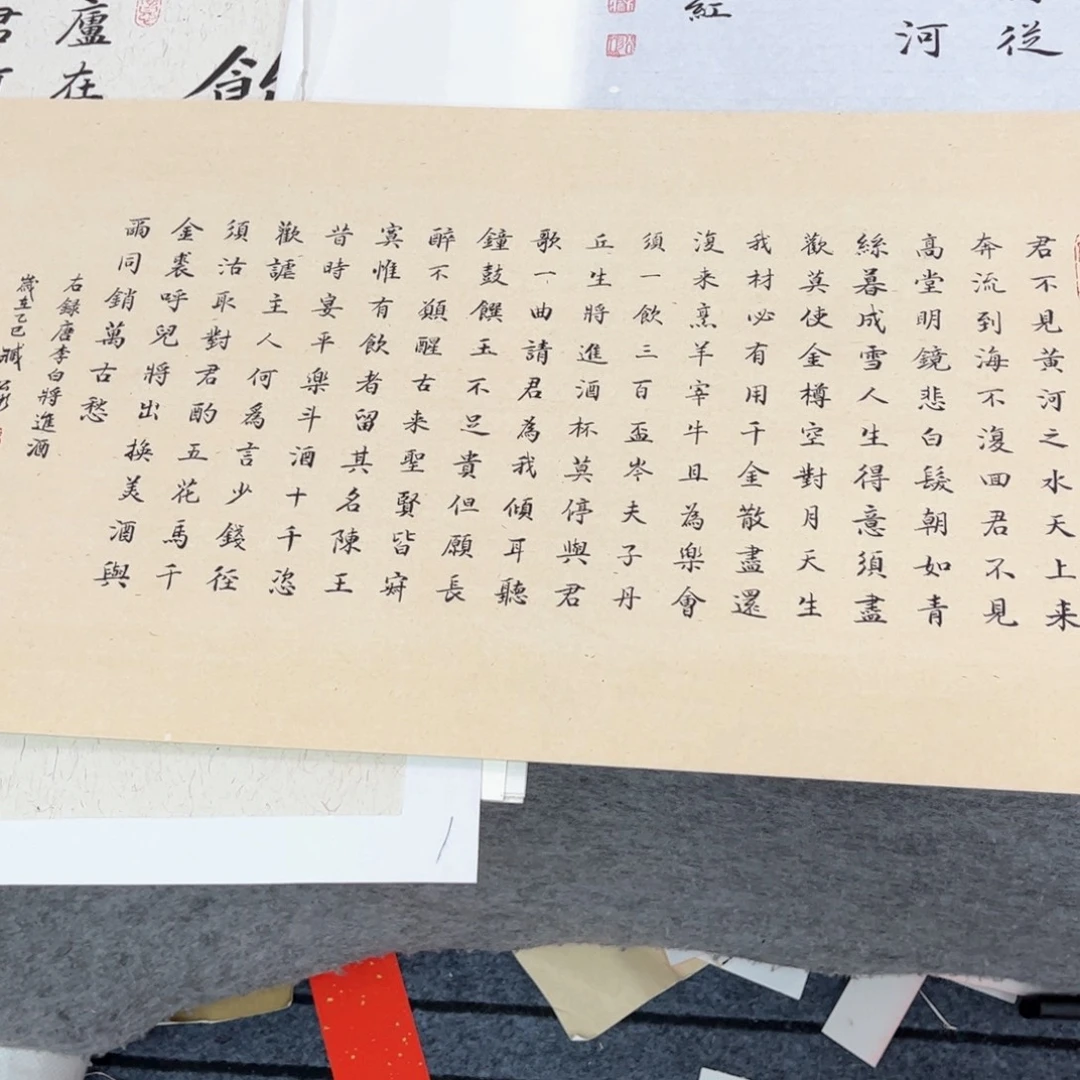 君不見黃河之水天上来
奔流到海不復回君不見
高堂明鏡悲白髮朝如青
絲暮成雪人生得意須盡
歡莫使金樽空對月天生
我材必有用千金散盡還
復来烹羊宰牛且為樂會
須一飲三百盃岑夫子丹
丘生將進酒杯莫停與君
歌一曲請君為我傾耳聽
鐘鼓饌玉不足貴但願長
醉不願醒古来聖賢皆寂
寞惟有飲者留其名陳王
昔時宴平樂斗酒十千恣
歡謔主人何為言少錢徑
須沽取對君酌五花馬千
金裘呼兒將出換美酒與
爾同銷萬古愁
右録唐李白將進酒
歲在乙巳
從
河
紅
廬在